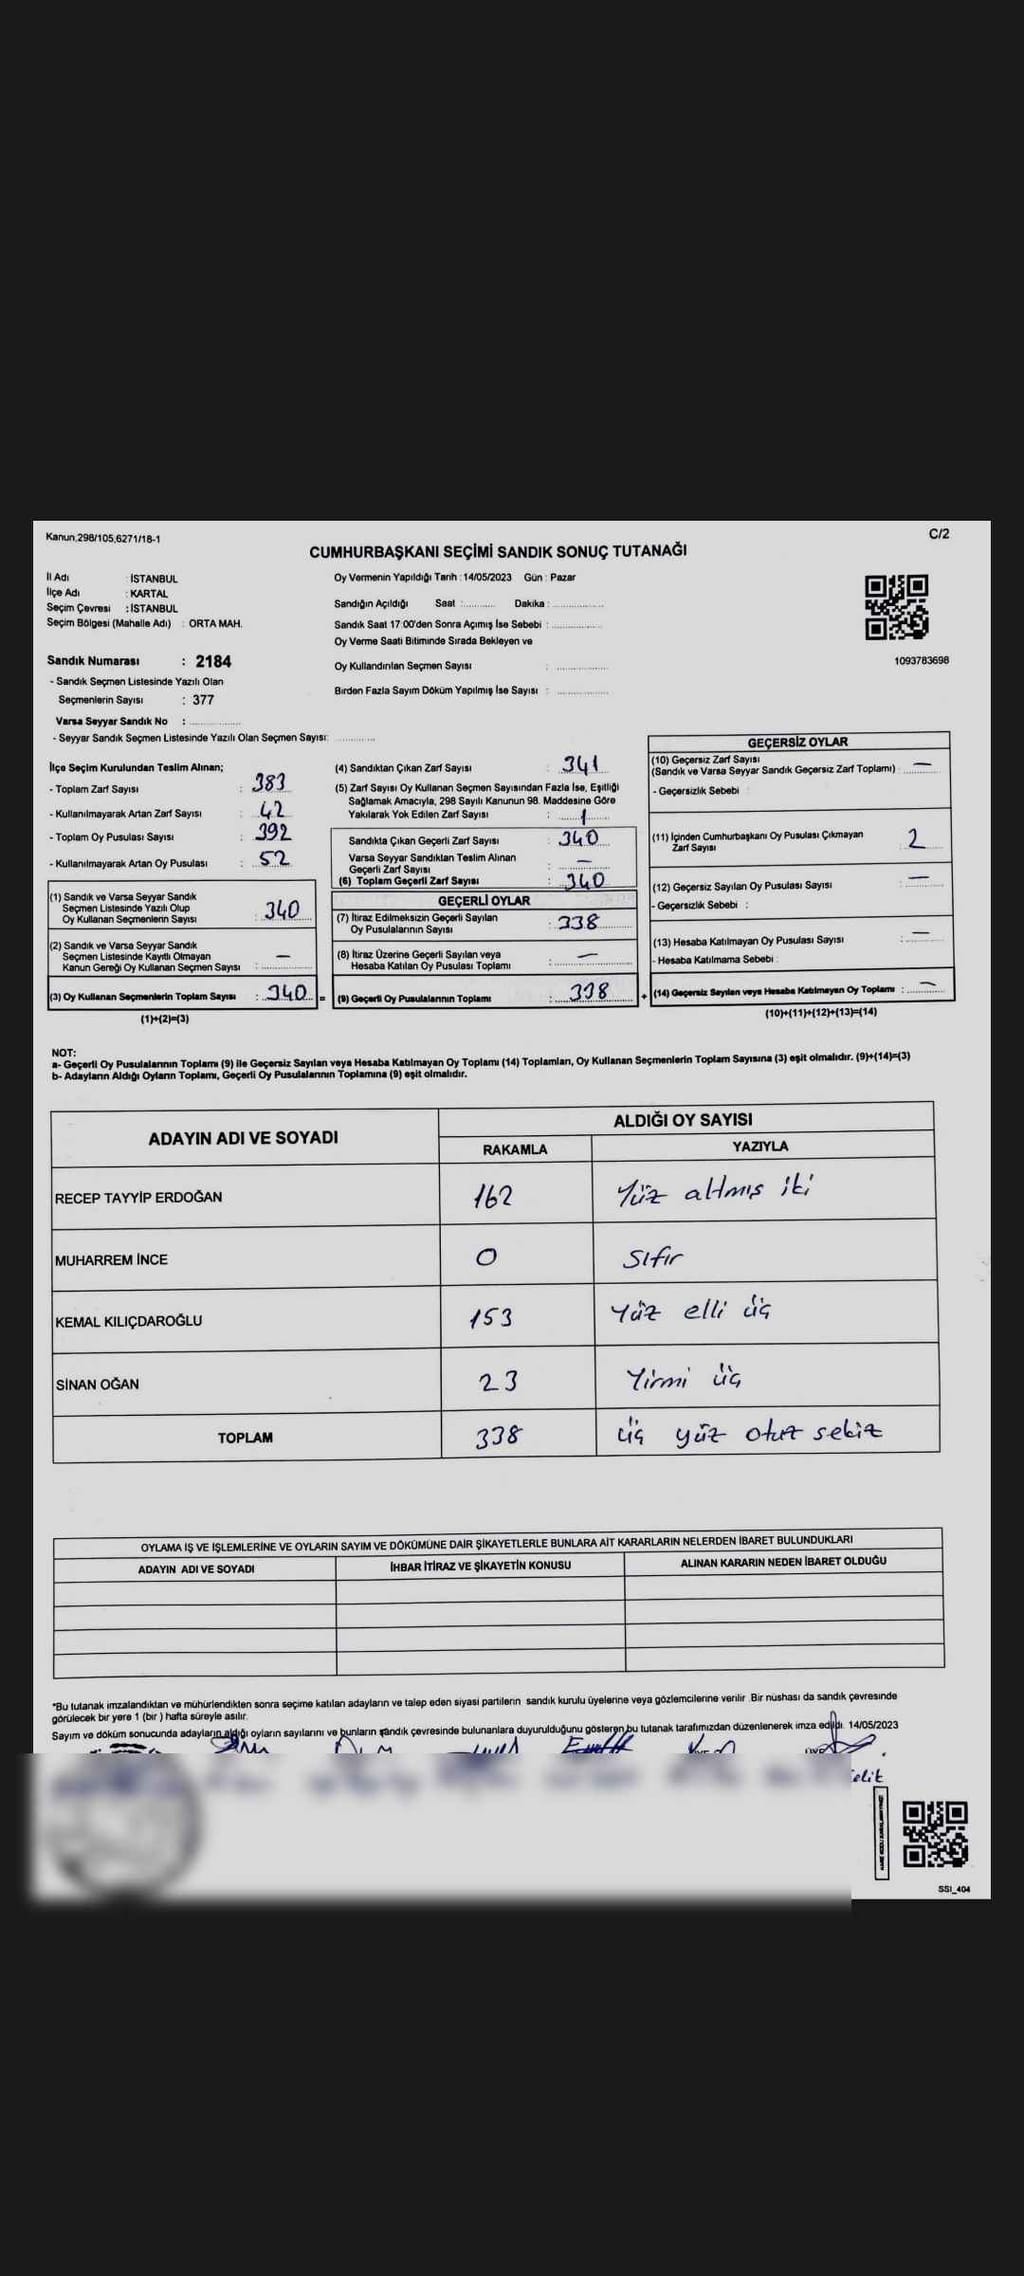 Kanun,298/105,6271/18-1
C/2
CUMHURBAŞKANI SEÇİMİ SANDIK SONUÇ TUTANAĞI
İl Adı : İSTANBUL
İlçe Adı : KARTAL
Seçim Çevresi : İSTANBUL
Seçim Bölgesi (Mahalle Adı) : ORTA MAH.
Oy Vermenin Yapıldığı Tarih : 14/05/2023 Gün : Pazar
Sandığın Açıldığı Saat :........... Dakika :..................
Sandık Saat 17:00'den Sonra Açımış İse Sebebi : ..................
Oy Verme Saati Bitiminde Sırada Bekleyen ve
Oy Kullandırılan Seçmen Sayısı : ..................
Birden Fazla Sayım Döküm Yapılmış İse Sayısı : ..................
1093783698
Sandık Numarası : 2184
- Sandık Seçmen Listesinde Yazılı Olan
Seçmenlerin Sayısı : 377
Varsa Seyyar Sandık No : ..................
- Seyyar Sandık Seçmen Listesinde Yazılı Olan Seçmen Sayısı: .............
İlçe Seçim Kurulundan Teslim Alınan;
- Toplam Zarf Sayısı : 383
- Kullanılmayarak Artan Zarf Sayısı : 42
- Toplam Oy Pusulası Sayısı : 392
- Kullanılmayarak Artan Oy Pusulası : 52
(1) Sandık ve Varsa Seyyar Sandık
Seçmen Listesinde Yazılı Olup
Oy Kullanan Seçmenlerin Sayısı : 340
(2) Sandık ve Varsa Seyyar Sandık
Seçmen Listesinde Kayıtlı Olmayan
Kanun Gereği Oy Kullanan Seçmen Sayısı : —
(3) Oy Kullanan Seçmenlerin Toplam Sayısı : 340 =
(1)+(2)=(3)
(4) Sandıktan Çıkan Zarf Sayısı : 341
(5) Zarf Sayısı Oy Kullanan Seçmen Sayısından Fazla İse, Eşitliği
Sağlamak Amacıyla, 298 Sayılı Kanunun 98. Maddesine Göre
Yakılarak Yok Edilen Zarf Sayısı : 1
Sandıkta Çıkan Geçerli Zarf Sayısı : 340
Varsa Seyyar Sandıktan Teslim Alınan
Geçerli Zarf Sayısı : —
(6) Toplam Geçerli Zarf Sayısı : 340
GEÇERLİ OYLAR
(7) İtiraz Edilmeksizin Geçerli Sayılan
Oy Pusulalarının Sayısı : 338
(8) İtiraz Üzerine Geçerli Sayılan veya
Hesaba Katılan Oy Pusulası Toplamı : —
(9) Geçerli Oy Pusulalarının Toplamı : 338 +
GEÇERSİZ OYLAR
(10) Geçersiz Zarf Sayısı
(Sandık ve Varsa Seyyar Sandık Geçersiz Zarf Toplamı) : —
- Geçersizlik Sebebi :
(11) İçinden Cumhurbaşkanı Oy Pusulası Çıkmayan
Zarf Sayısı : 2
(12) Geçersiz Sayılan Oy Pusulası Sayısı : —
- Geçersizlik Sebebi :
(13) Hesaba Katılmayan Oy Pusulası Sayısı : —
- Hesaba Katılmama Sebebi :
(14) Geçersiz Sayılan veya Hesaba Katılmayan Oy Toplamı : —
(10)+(11)+(12)+(13)=(14)
NOT:
a- Geçerli Oy Pusulalarının Toplamı (9) ile Geçersiz Sayılan veya Hesaba Katılmayan Oy Toplamı (14) Toplamları, Oy Kullanan Seçmenlerin Toplam Sayısına (3) eşit olmalıdır. (9)+(14)=(3)
b- Adayların Aldığı Oyların Toplamı, Geçerli Oy Pusulalarının Toplamına (9) eşit olmalıdır.
ADAYIN ADI VE SOYADI
ALDIĞI OY SAYISI
RAKAMLA YAZIYLA
RECEP TAYYİP ERDOĞAN 162 Yüz altmış iki
MUHARREM İNCE 0 Sıfır
KEMAL KILIÇDAROĞLU 153 Yüz elli üç
SİNAN OĞAN 23 Yirmi üç
TOPLAM 338 üç yüz otuz sekiz
OYLAMA İŞ VE İŞLEMLERİNE VE OYLARIN SAYIM VE DÖKÜMÜNE DAİR ŞİKAYETLERLE BUNLARA AİT KARARLARIN NELERDEN İBARET BULUNDUKLARI
ADAYIN ADI VE SOYADI İHBAR İTİRAZ VE ŞİKAYETİN KONUSU ALINAN KARARIN NEDEN İBARET OLDUĞU
*Bu tutanak imzalandıktan ve mühürlendikten sonra seçime katılan adayların ve talep eden siyasi partilerin sandık kurulu üyelerine veya gözlemcilerine verilir. Bir nüshası da sandık çevresinde
görülecek bir yere 1 (bir ) hafta süreyle asılır.
Sayım ve döküm sonucunda adayların aldığı oyların sayılarını ve bunların sandık çevresinde bulunanlara duyurulduğunu gösteren bu tutanak tarafımızdan düzenlenerek imza edildi. 14/05/2023
SSI_404